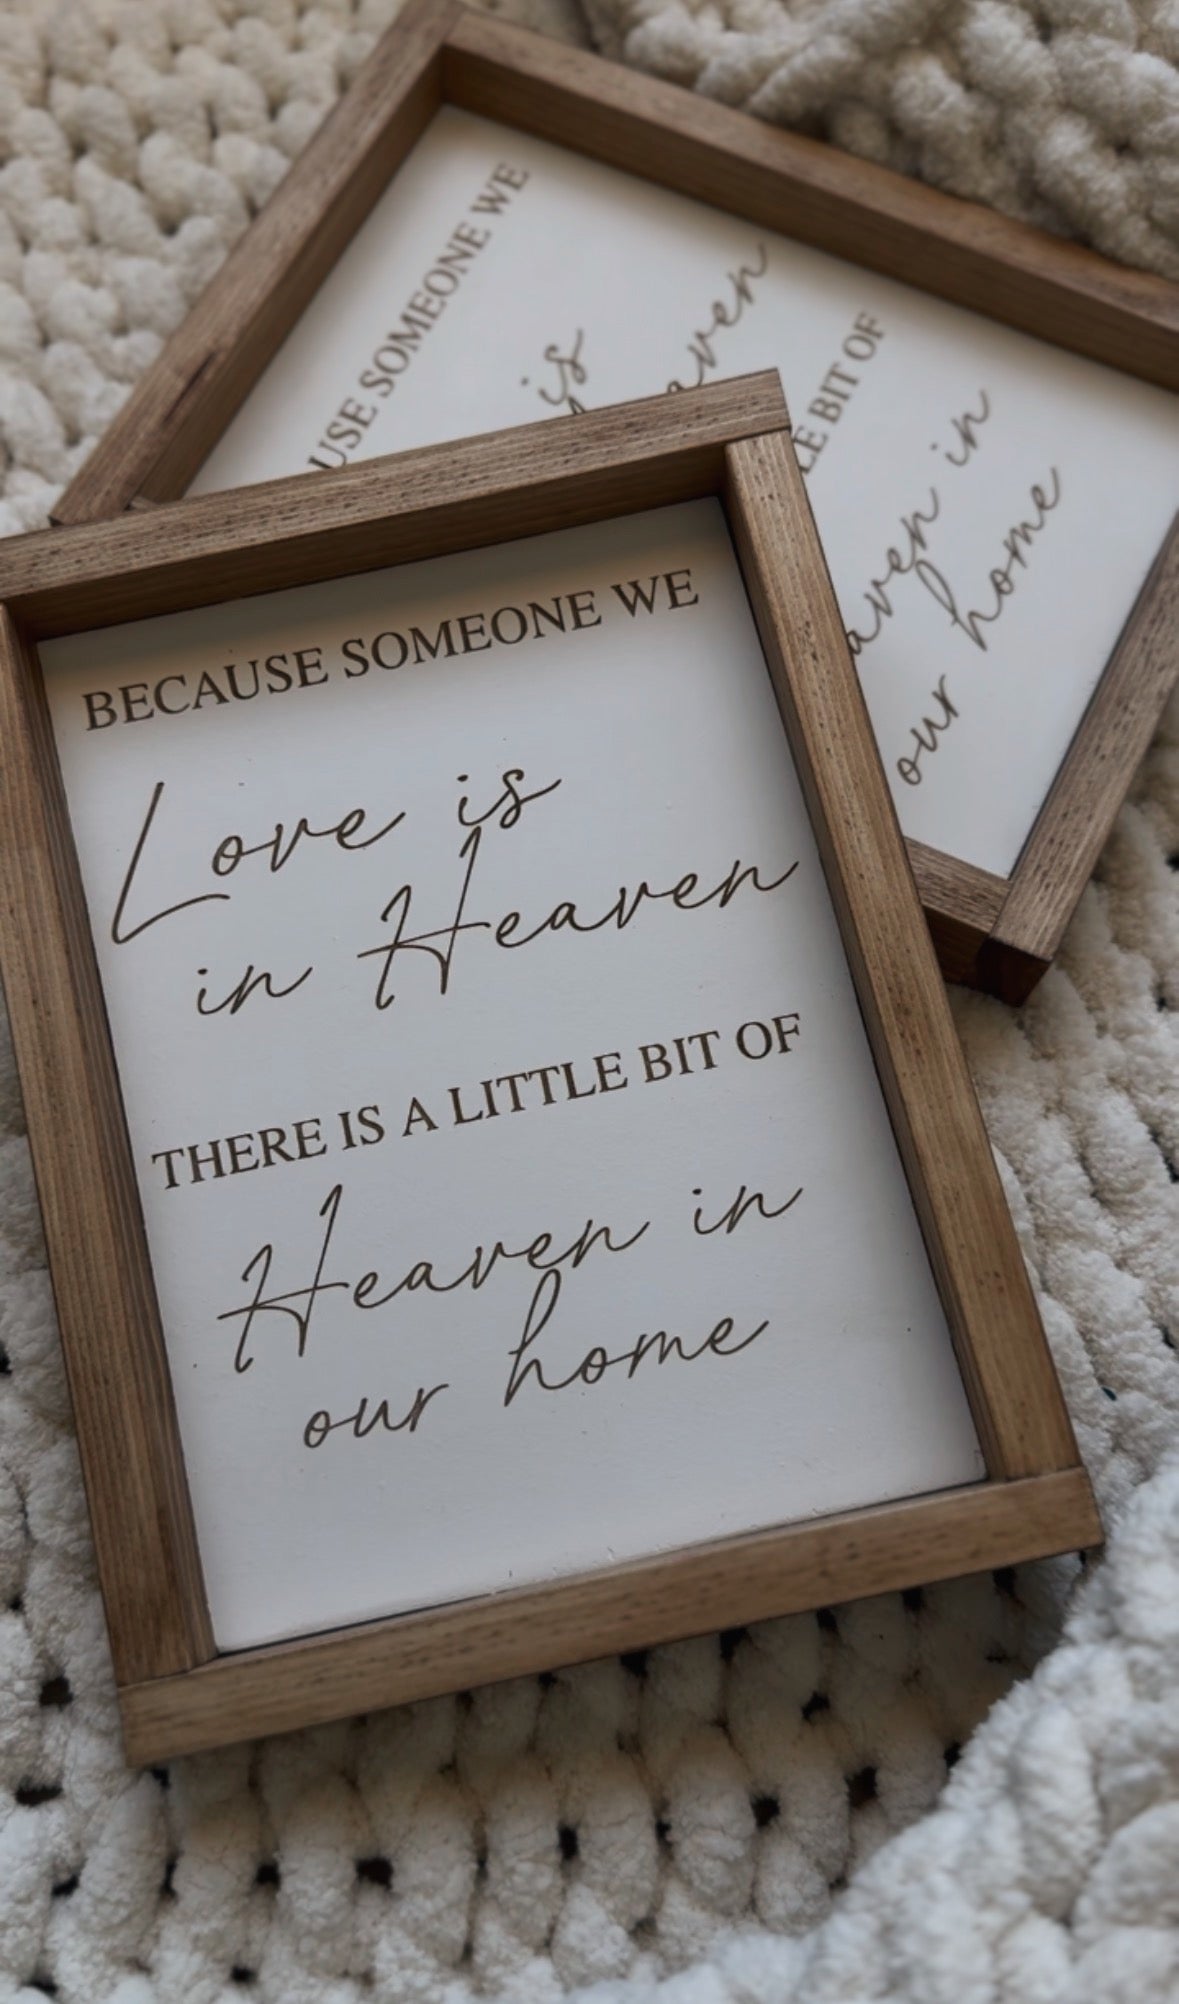 BECAUSE SOMEONE WE
Love is
in Heaven
THERE IS A LITTLE BIT OF
Heaven in
our home
USE SOMEONE WE
is
aven
LE BIT OF
aven in
our home